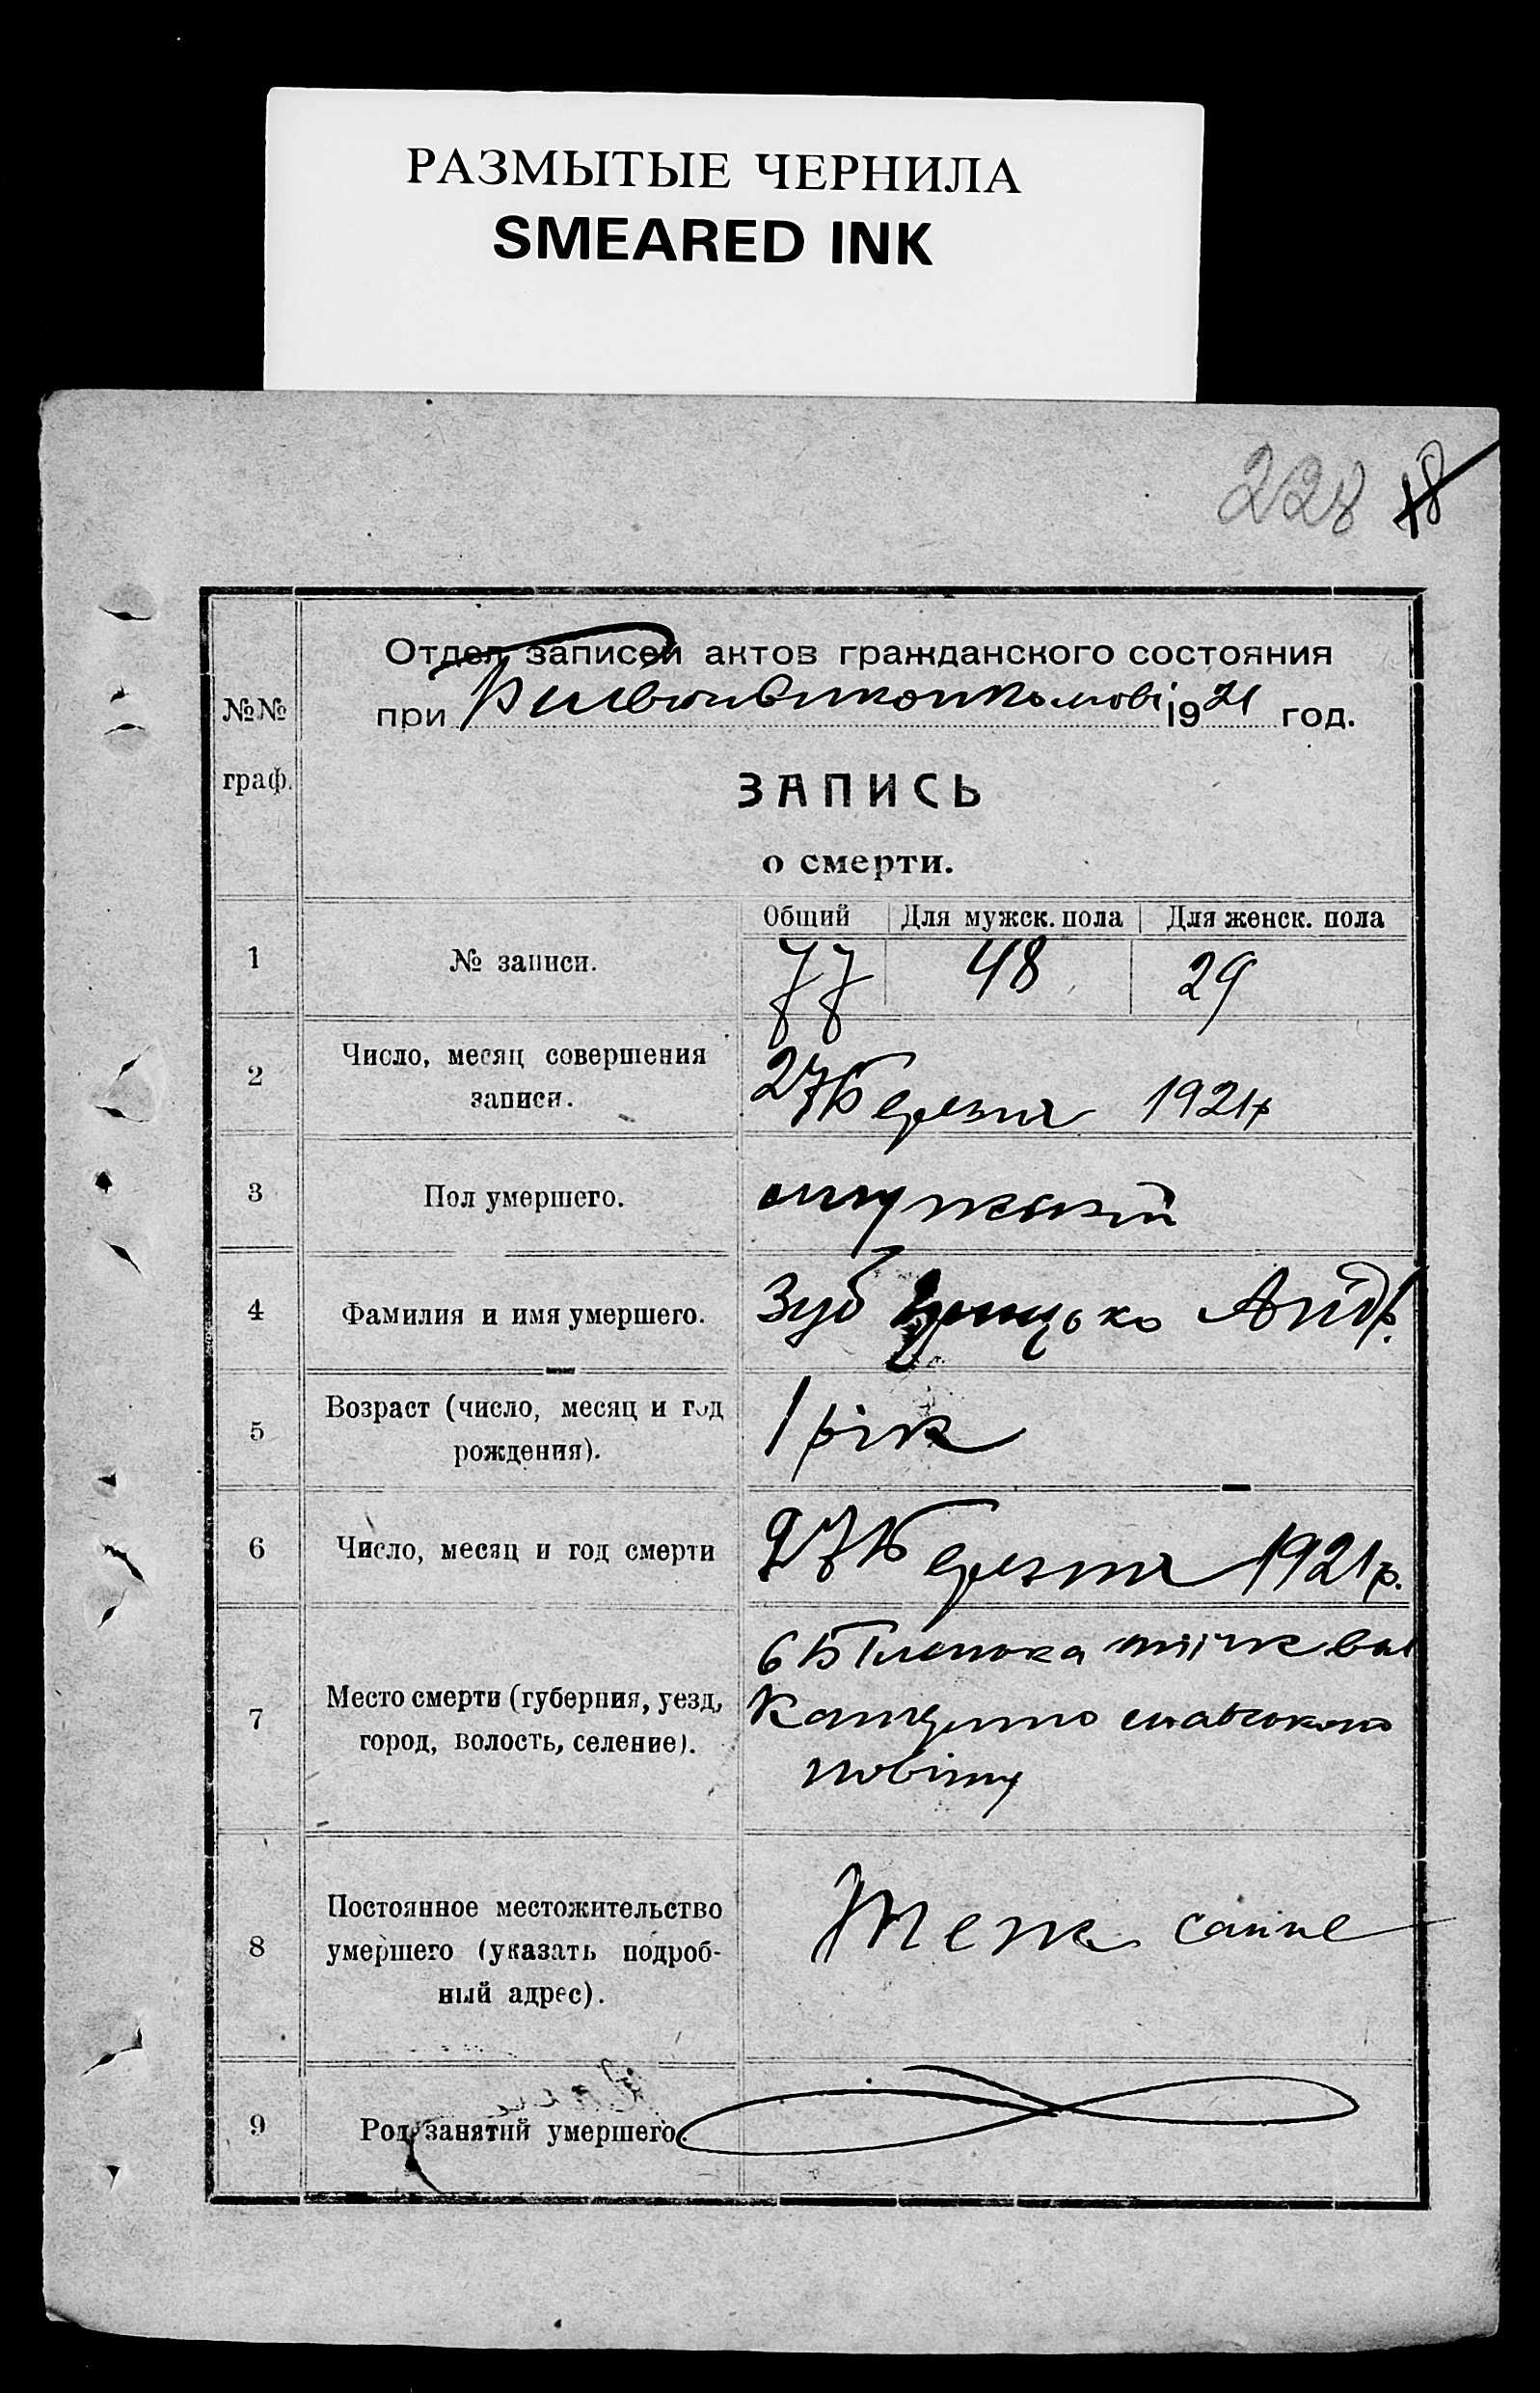 РАЗМЫТЫЕ ЧЕРНИЛА
SMEARED INK
228 18
Отдел записей актов гражданского состояния
при 1921 год.
№№
граф.
ЗАПИСЬ
о смерти.
Общий Для мужск. пола Для женск. пола
1 № записи. 77 48 29
2 Число, месяц совершения
записи. 27 Березня 1921 р
3 Пол умершего. мужський
4 Фамилия и имя умершего. Зуб Грицько Андр.
5 Возраст (число, месяц и год
рождения). 1 рік
6 Число, месяц и год смерти 27 Березня 1921 р.
7 Место смерти (губерния, уезд,
город, волость, селение). вол
повіту
8 Постоянное местожительство
умершего (указать подроб-
ный адрес). Теж саме
9 Род занятий умершего.